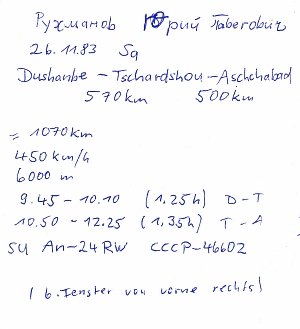 Рухманов Юрий Паверович
26.11.83 Sa
Dushanbe - Tschardshou - Aschchabad
570 km 500 km
= 1070 km
450 km/h
6000 m
9.45 - 10.10 (1,25h) D-T
10.50 - 12.25 (1,35h) T-A
SU An-24RW CCCP-46602
/ 6. Fenster von vorne rechts /